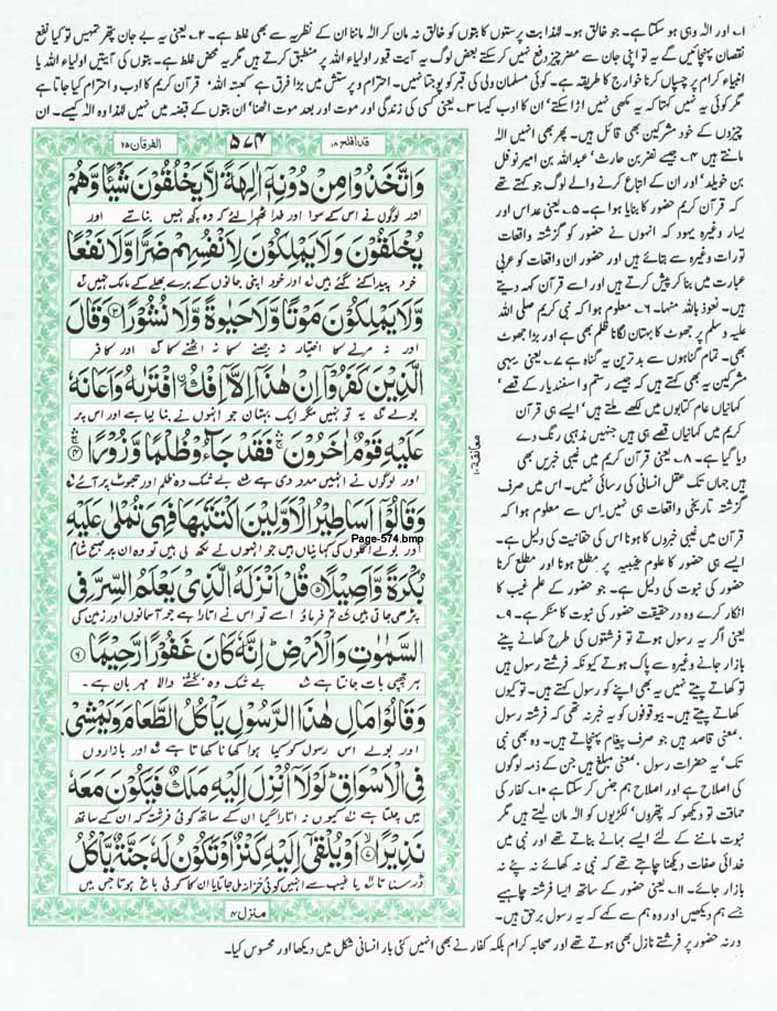 ۱۔ اور الٰہ وہی ہو سکتا ہے۔ جو خالق ہو۔ لہٰذا بت پرستوں کا بتوں کو خالق نہ مان کر الٰہ ماننا ان کے نظریہ سے بھی غلط ہے۔ ۲۔ یعنی یہ بے جان پتھر تمہیں تو کیا نفع
نقصان پہنچائیں گے یہ تو اپنی جان سے مضر چیز دفع نہیں کر سکتے بعض لوگ یہ آیت قبور اولیاء اللہ پر منطبق کرتے ہیں مگر یہ محض غلط ہے۔ بتوں کی آیتیں اولیاء اللہ یا
انبیاء کرام پر چسپاں کرنا خوارج کا طریقہ ہے۔ کوئی مسلمان ولی کی قبر کو پوجتا نہیں۔ احترام و پرستش میں بڑا فرق ہے کعبتہ اللہ‘ قرآن کریم کا ادب و احترام کیا جاتا ہے
مگر کوئی یہ نہیں کہتا کہ یہ مکھی نہیں اڑا سکتے‘ ان کا ادب کیسا ۳۔ یعنی کسی کی زندگی اور موت اور بعد موت اٹھنا‘ ان بتوں کے قبضہ میں نہیں لہٰذا وہ الٰہ کیسے۔ ان
چیزوں کے خود مشرکین بھی قائل ہیں۔ پھر بھی انہیں الٰہ
مانتے ہیں ۴۔ جیسے نضر بن حارث‘ عبداللہ بن امیر نوفل
بن خویلد‘ اور ان کے اتباع کرنے والے لوگ جو کہتے تھے
کہ قرآن کریم حضور کا بنایا ہوا ہے۔ ۵۔ یعنی عداس اور
یسار وغیرہ یہود کہ انہوں نے حضور کو گزشتہ واقعات
تورات وغیرہ سے بتائے ہیں اور حضور ان واقعات کو عربی
عبارت میں بنا کر پیش کرتے ہیں اور اسے قرآن کہہ دیتے
ہیں۔ نعوذ باللہ منہا۔ ۶۔ معلوم ہوا کہ نبی کریم صلی اللہ
علیہ وسلم پر جھوٹ کا بہتان لگانا ظلم بھی ہے اور بڑا جھوٹ
بھی۔ تمام گناہوں سے بدترین یہ گناہ ہے ۷۔ یعنی یہی
مشرکین یہ بھی کہتے ہیں کہ جیسے رستم و اسفندیار کے قصے‘
کہانیاں عام کتابوں میں لکھے ملتے ہیں‘ ایسے ہی قرآن
کریم میں کہانیاں قصے ہی ہیں جنہیں مذہبی رنگ دے
دیا گیا ہے۔ ۸۔ یعنی قرآن کریم میں غیبی خبریں بھی
ہیں جہاں تک عقل انسانی کی رسائی نہیں۔ اس میں صرف
گزشتہ تاریخی واقعات ہی نہیں اس سے معلوم ہوا کہ
قرآن میں غیبی خبروں کا ہونا اس کی حقانیت کی دلیل ہے۔
ایسے ہی حضور کا علوم غیبیہ پر مطلع ہونا اور مطلع کرنا
حضور کی نبوت کی دلیل ہے۔ جو حضور کے علم غیب کا
انکار کرے وہ در حقیقت حضور کی نبوت کا منکر ہے۔ ۹۔
یعنی اگر یہ رسول ہوتے تو فرشتوں کی طرح کھانے پینے
بازار جانے وغیرہ سے پاک ہوتے کیونکہ فرشتے رسول ہیں
تو کھاتے پیتے نہیں یہ بھی اپنے کو رسول کہتے ہیں۔ تو کیوں
کھاتے پیتے ہیں۔ بیوقوفوں کو یہ خبر نہ تھی کہ فرشتہ رسول
بمعنی قاصد ہیں جو صرف پیغام پہنچاتے ہیں۔ وہ بھی نبی
تک‘ یہ حضرات رسول بمعنی مبلغ ہیں جن کے ذمہ لوگوں
کی اصلاح ہے اور اصلاح ہم جنس کر سکتا ہے ۱۰۔ کفار کی
حماقت تو دیکھو کہ پتھروں‘ لکڑیوں کو الٰہ مان لیتے ہیں مگر
نبوت ماننے کے لئے ایسے بہانے بناتے تھے اور نبی میں
خدائی صفات دیکھنا چاہتے تھے کہ نبی نہ کھائے نہ پئے نہ
بازار جائے۔ ۱۱۔ یعنی حضور کے ساتھ ایسا فرشتہ چاہیے
جسے ہم دیکھیں اور وہ ہم سے کہے کہ یہ رسول برحق ہیں۔
ورنہ حضور پر فرشتے نازل بھی ہوتے تھے اور صحابہ کرام بلکہ کفار نے بھی انہیں کئی بار انسانی شکل میں دیکھا اور محسوس کیا۔
قد افلح ۱۸ ۵۷۴ الفرقان ۲۵
وَاتَّخَذُوْا مِنْ دُوْنِهٖۤ اٰلِهَةً لَّا يَخْلُقُوْنَ شَيْـًٔا وَّهُمْ
اور لوگوں نے اس کے سوا اور خدا ٹھہرا لئے کہ وہ کچھ نہیں بناتے اور
يُخْلَقُوْنَ وَلَا يَمْلِكُوْنَ لِاَنْفُسِهِمْ ضَرًّا وَّلَا نَفْعًا
خود پیدا کئے گئے ہیں اور خود اپنی جانوں کے برے بھلے کے مالک نہیں
وَّلَا يَمْلِكُوْنَ مَوْتًا وَّلَا حَيٰوةً وَّلَا نُشُوْرًا ۳ وَقَالَ
اور نہ مرنے کا اختیار نہ جینے کا نہ اٹھنے کا اور کافر
الَّذِيْنَ كَفَرُوْۤا اِنْ هٰذَاۤ اِلَّاۤ اِفْكُ اۨفْتَرٰىهُ وَاَعَانَهٗ
بولے یہ تو نہیں مگر ایک بہتان جو انہوں نے بنا لیا ہے اور اس پر
عَلَيْهِ قَوْمٌ اٰخَرُوْنَ ۛۚ فَقَدْ جَآءُوْ ظُلْمًا وَّزُوْرًا ۛۚ ۴
اور لوگوں نے انہیں مدد دی ہے بے شک وہ ظلم اور جھوٹ پر آئے
معانقة ۱۰
وَقَالُوْۤا اَسَاطِيْرُ الْاَوَّلِيْنَ اكْتَتَبَهَا فَهِيَ تُمْلٰى عَلَيْهِ
Page-574.bmp
اور بولے اگلوں کی کہانیاں ہیں جو انہوں نے لکھ لی ہیں تو وہ ان پر صبح شام
بُكْرَةً وَّاَصِيْلًا ۵ قُلْ اَنْزَلَهُ الَّذِيْ يَعْلَمُ السِّرَّ فِي
پڑھی جاتی ہیں تم فرماؤ اسے تو اس نے اتارا ہے جو آسمانوں اور زمین کی
السَّمٰوٰتِ وَالْاَرْضِ ؕ اِنَّهٗ كَانَ غَفُوْرًا رَّحِيْمًا ۶
ہر چھپی بات جانتا ہے بے شک وہ بخشنے والا مہربان ہے ۔
وَقَالُوْا مَالِ هٰذَا الرَّسُوْلِ يَاْكُلُ الطَّعَامَ وَيَمْشِيْ
اور بولے اس رسول کو کیا ہوا کھانا کھاتا ہے اور بازاروں
فِي الْاَسْوَاقِ ؕ لَوْلَاۤ اُنْزِلَ اِلَيْهِ مَلَكٌ فَيَكُوْنَ مَعَهٗ
میں چلتا ہے کیوں نہ اتارا گیا ان کے ساتھ کوئی فرشتہ کہ ان کے ساتھ
نَذِيْرًا ۙ ۷ اَوْ يُلْقٰۤى اِلَيْهِ كَنْزٌ اَوْ تَكُوْنُ لَهٗ جَنَّةٌ يَّاْكُلُ
ڈر سناتا یا غیب سے انہیں کوئی خزانہ مل جاتا یا ان کا کوئی باغ ہوتا جس میں
منزل ۴